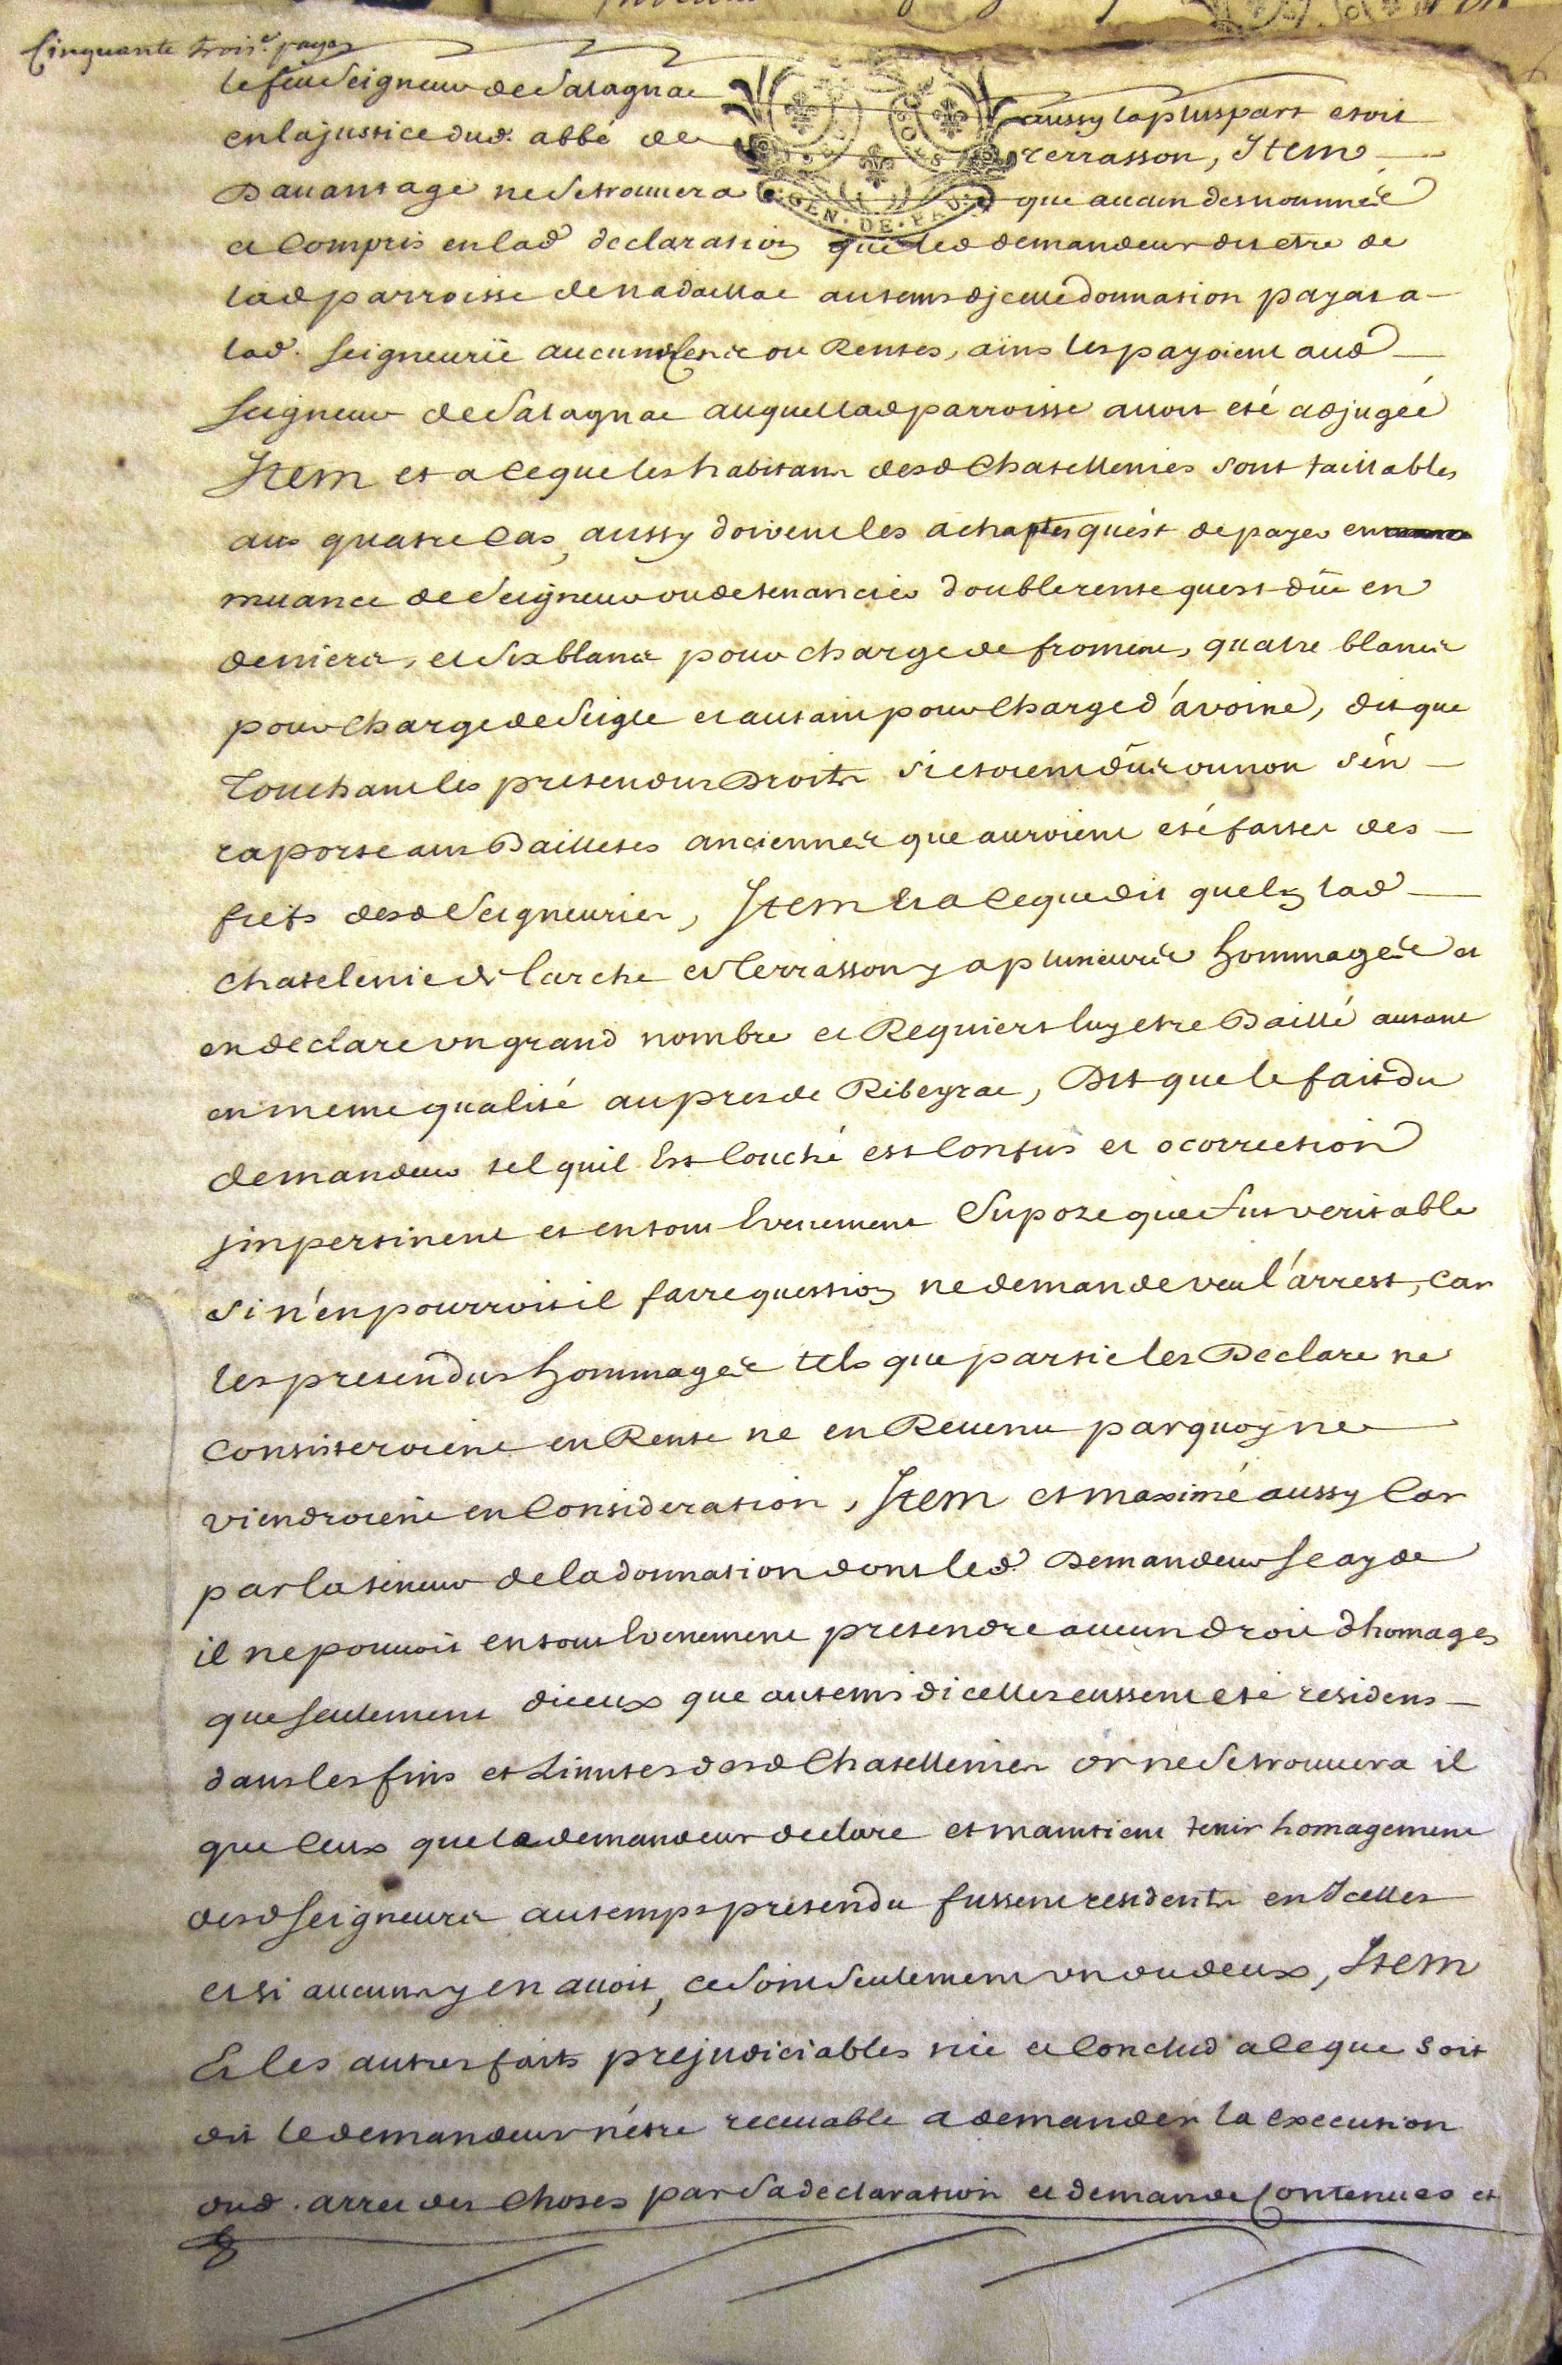 Cinquante trois.e page
le feu Seigneur de Salagnac aussy la pluspart etoit
en la justice dud. abbé de Terrasson, Item
Davantage ne se trouvera que aucun des nommés
GEN · DE · PAU
et Compris en lad declaration que led demandeur dit etre de
lad parroisse de nadaillac au tems d'jcelle donnation payat a
lad. Seigneurie aucuns Cens ou Rentes, ains les payoient aud
Seigneur de Salagnac auquel lad parroisse avoit eté adjugée
Item et a ce que les habitans desd Chatellenies sont taillables
aux quatre Cas, aussy doivent les achaptes qu'est de payer en
muance de Seigneur ou de tenancier double rente quest düe en
deniers, et six blancs pour charge de froment, quatre blancs
pour Charge de Seigle et autant pour Charge d'avoine, dit que
touchant les pretendus Droits s'ils etoient dûs ou non s'en
raporte aux Bailletes anciennes que auroient eté faites des
fiefs desd Seigneuries, Item Et a ce que dit quelz lad
chatelenie de larche et Terrasson y a plusieurs hommages et
en declare un grand nombre et Requiert luy etre Baillé autant
en meme qualité au pres de Ribeyrac, Dit que le fait du
demandeur tel quil Est Couché est Confus et a correction
jmpertinent et en tout Evenement Supozé que fut veritable
si n'en pourroit il faire question ne demande veu l'arrest, Car
les pretendus hommages tels que partie les Declare ne
Consisteroient en Rente ne en Revenu par quoy ne
viendroient en Consideration, Item et maximé aussy Car
par la teneur de la donnation dont led. Demandeur se ayde
il ne pouvoit en tout Evenement pretendre aucun droit d'homages
que seulement d'iceux que au tems dicelles eussent eté residens
dans les fins et Limites desd Chatellenies or ne se trouvera il
que Ceux que le demandeur declare et maintient tenir homagement
desd Seigneurs au temps pretendu fussent residents en Icelles
et si aucuns y en avoit, ce soint seulement un ou deux, Item
Et les autres faits prejudiciables nie et Conclud a ce que soit
dit le demandeur n'etre recevable a demander la execution
dud. arret des Choses par Sa declaration et demande Contenues et